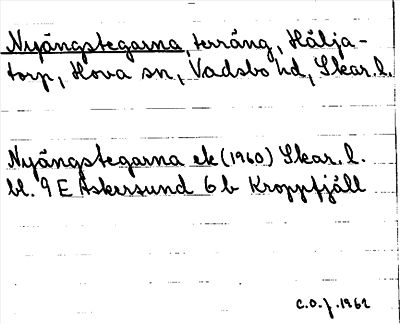 Nyängstegarna, terräng, Hälja-
torp, Hova sn, Vadsbo hd, Skar. l.
Nyängstegarna ek (1960) Skar. l.
bl. 9 E Askersund 6 b Kroppfjäll
C.O.f. 1962